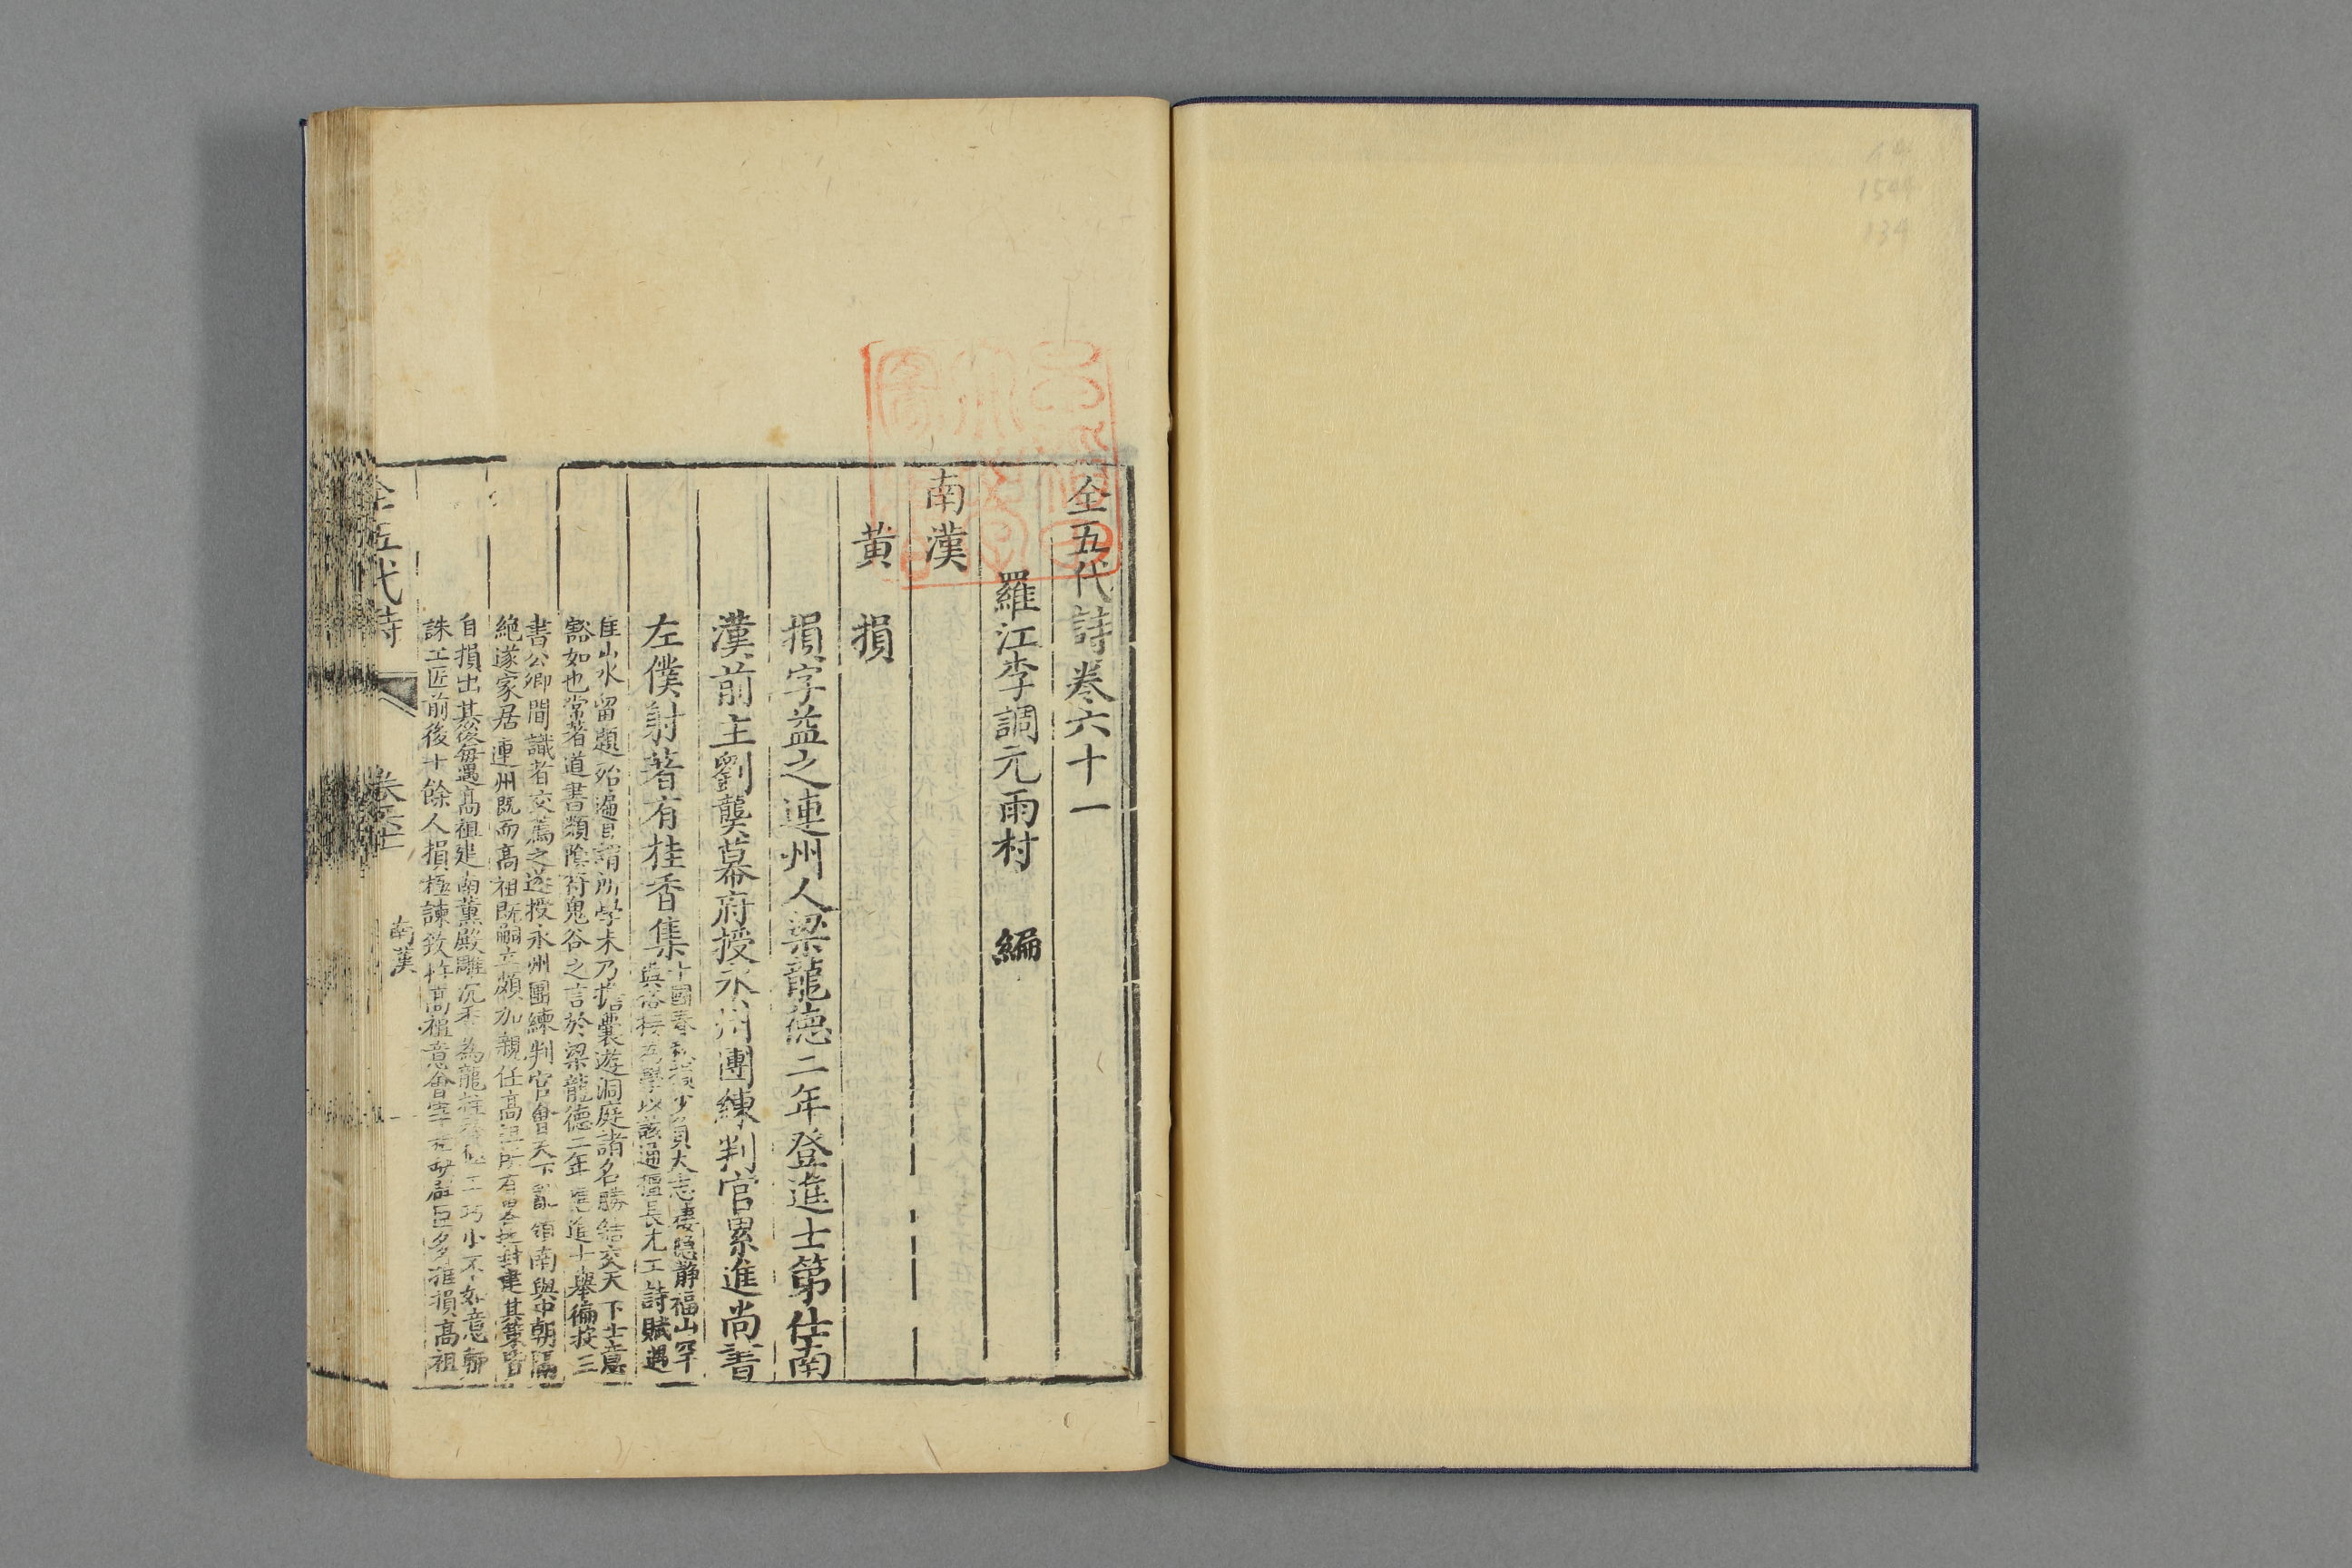 全五代詩卷六十一
羅江李調元雨村 編
南漢
黃 損
損字益之連州人梁龍德二年登進士第仕南
漢前主劉龑幕府授永州團練判官累進尚書
左僕射著有桂香集
十國春秋損少負大志棲隱靜福山罕
與俗接為學以該通擅長尤工詩賦遇
佳山水留題殆遍自謂所學未乃擔囊遊洞庭諸名勝結交天下士意
豁如也常著道書類陰符鬼谷之言於梁龍德二年應進士舉徧投三
書公卿間識者交薦之遂授永州團練判官會天下亂嶺南與中朝隔
絕遂家居連州既而高祖既嗣立頗加親任高祖所有畧封建其策皆
自損出其後每遇高祖建南薰殿雕沉香為龍柱工巧小不如意輙
誅工匠前後十餘人損極諫致忤高祖意會宰羣臣多推損高祖
全五代詩
卷六十一
南漢
一
1544
134